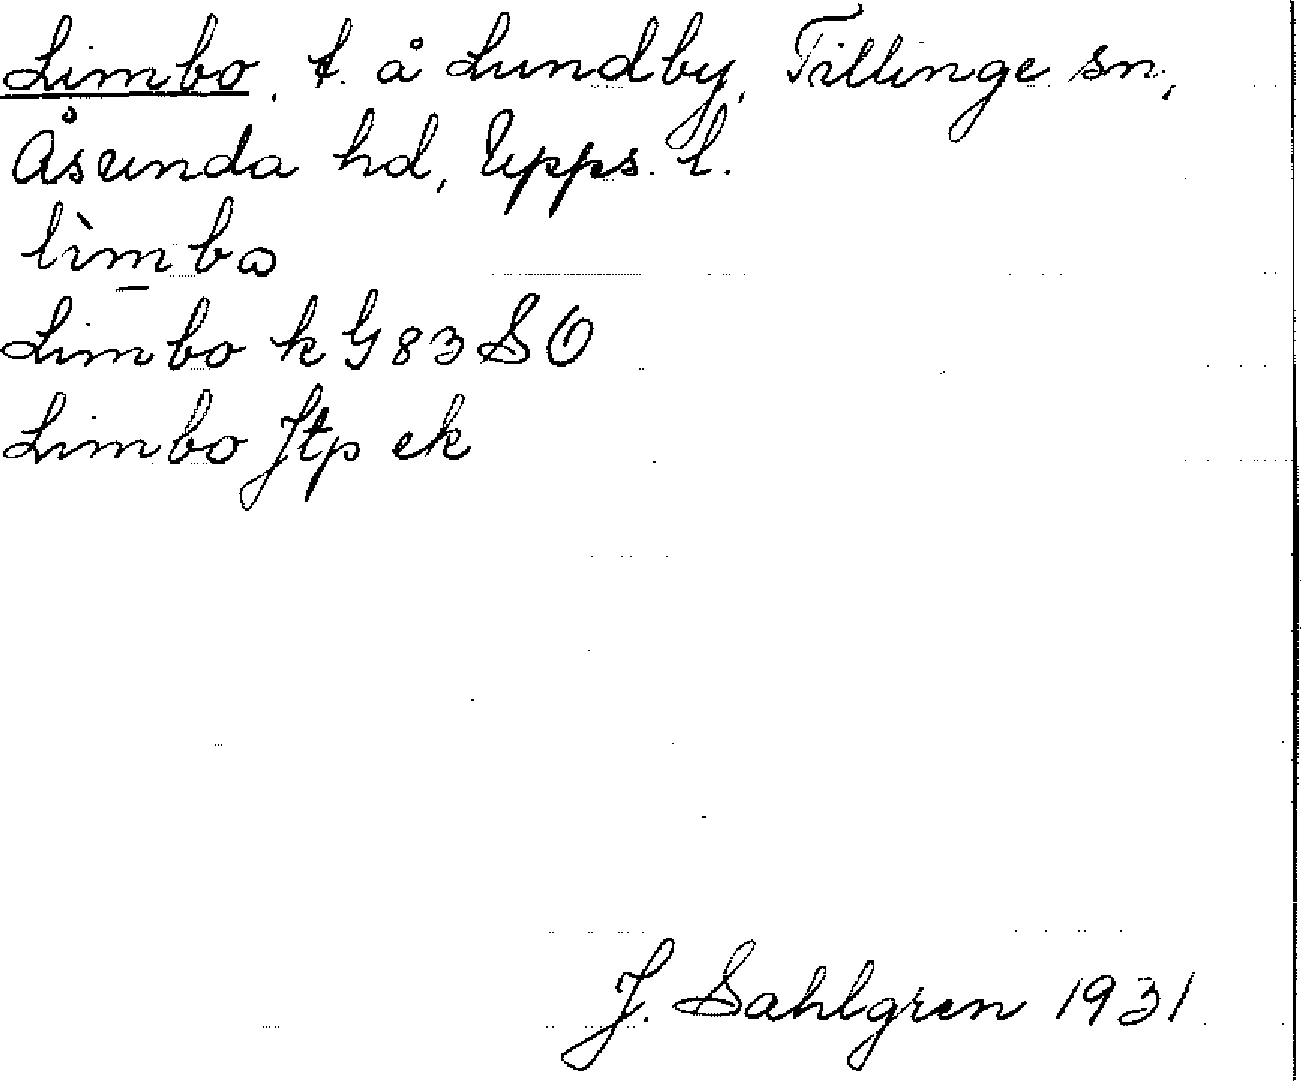 Limbo, t. å Lundby, Tillinge sn,
Åsunda hd, Upps. l.
lìmbꞷ
Limbo k G 83 SO
Limbo Jtp ek
J. Sahlgren 1931